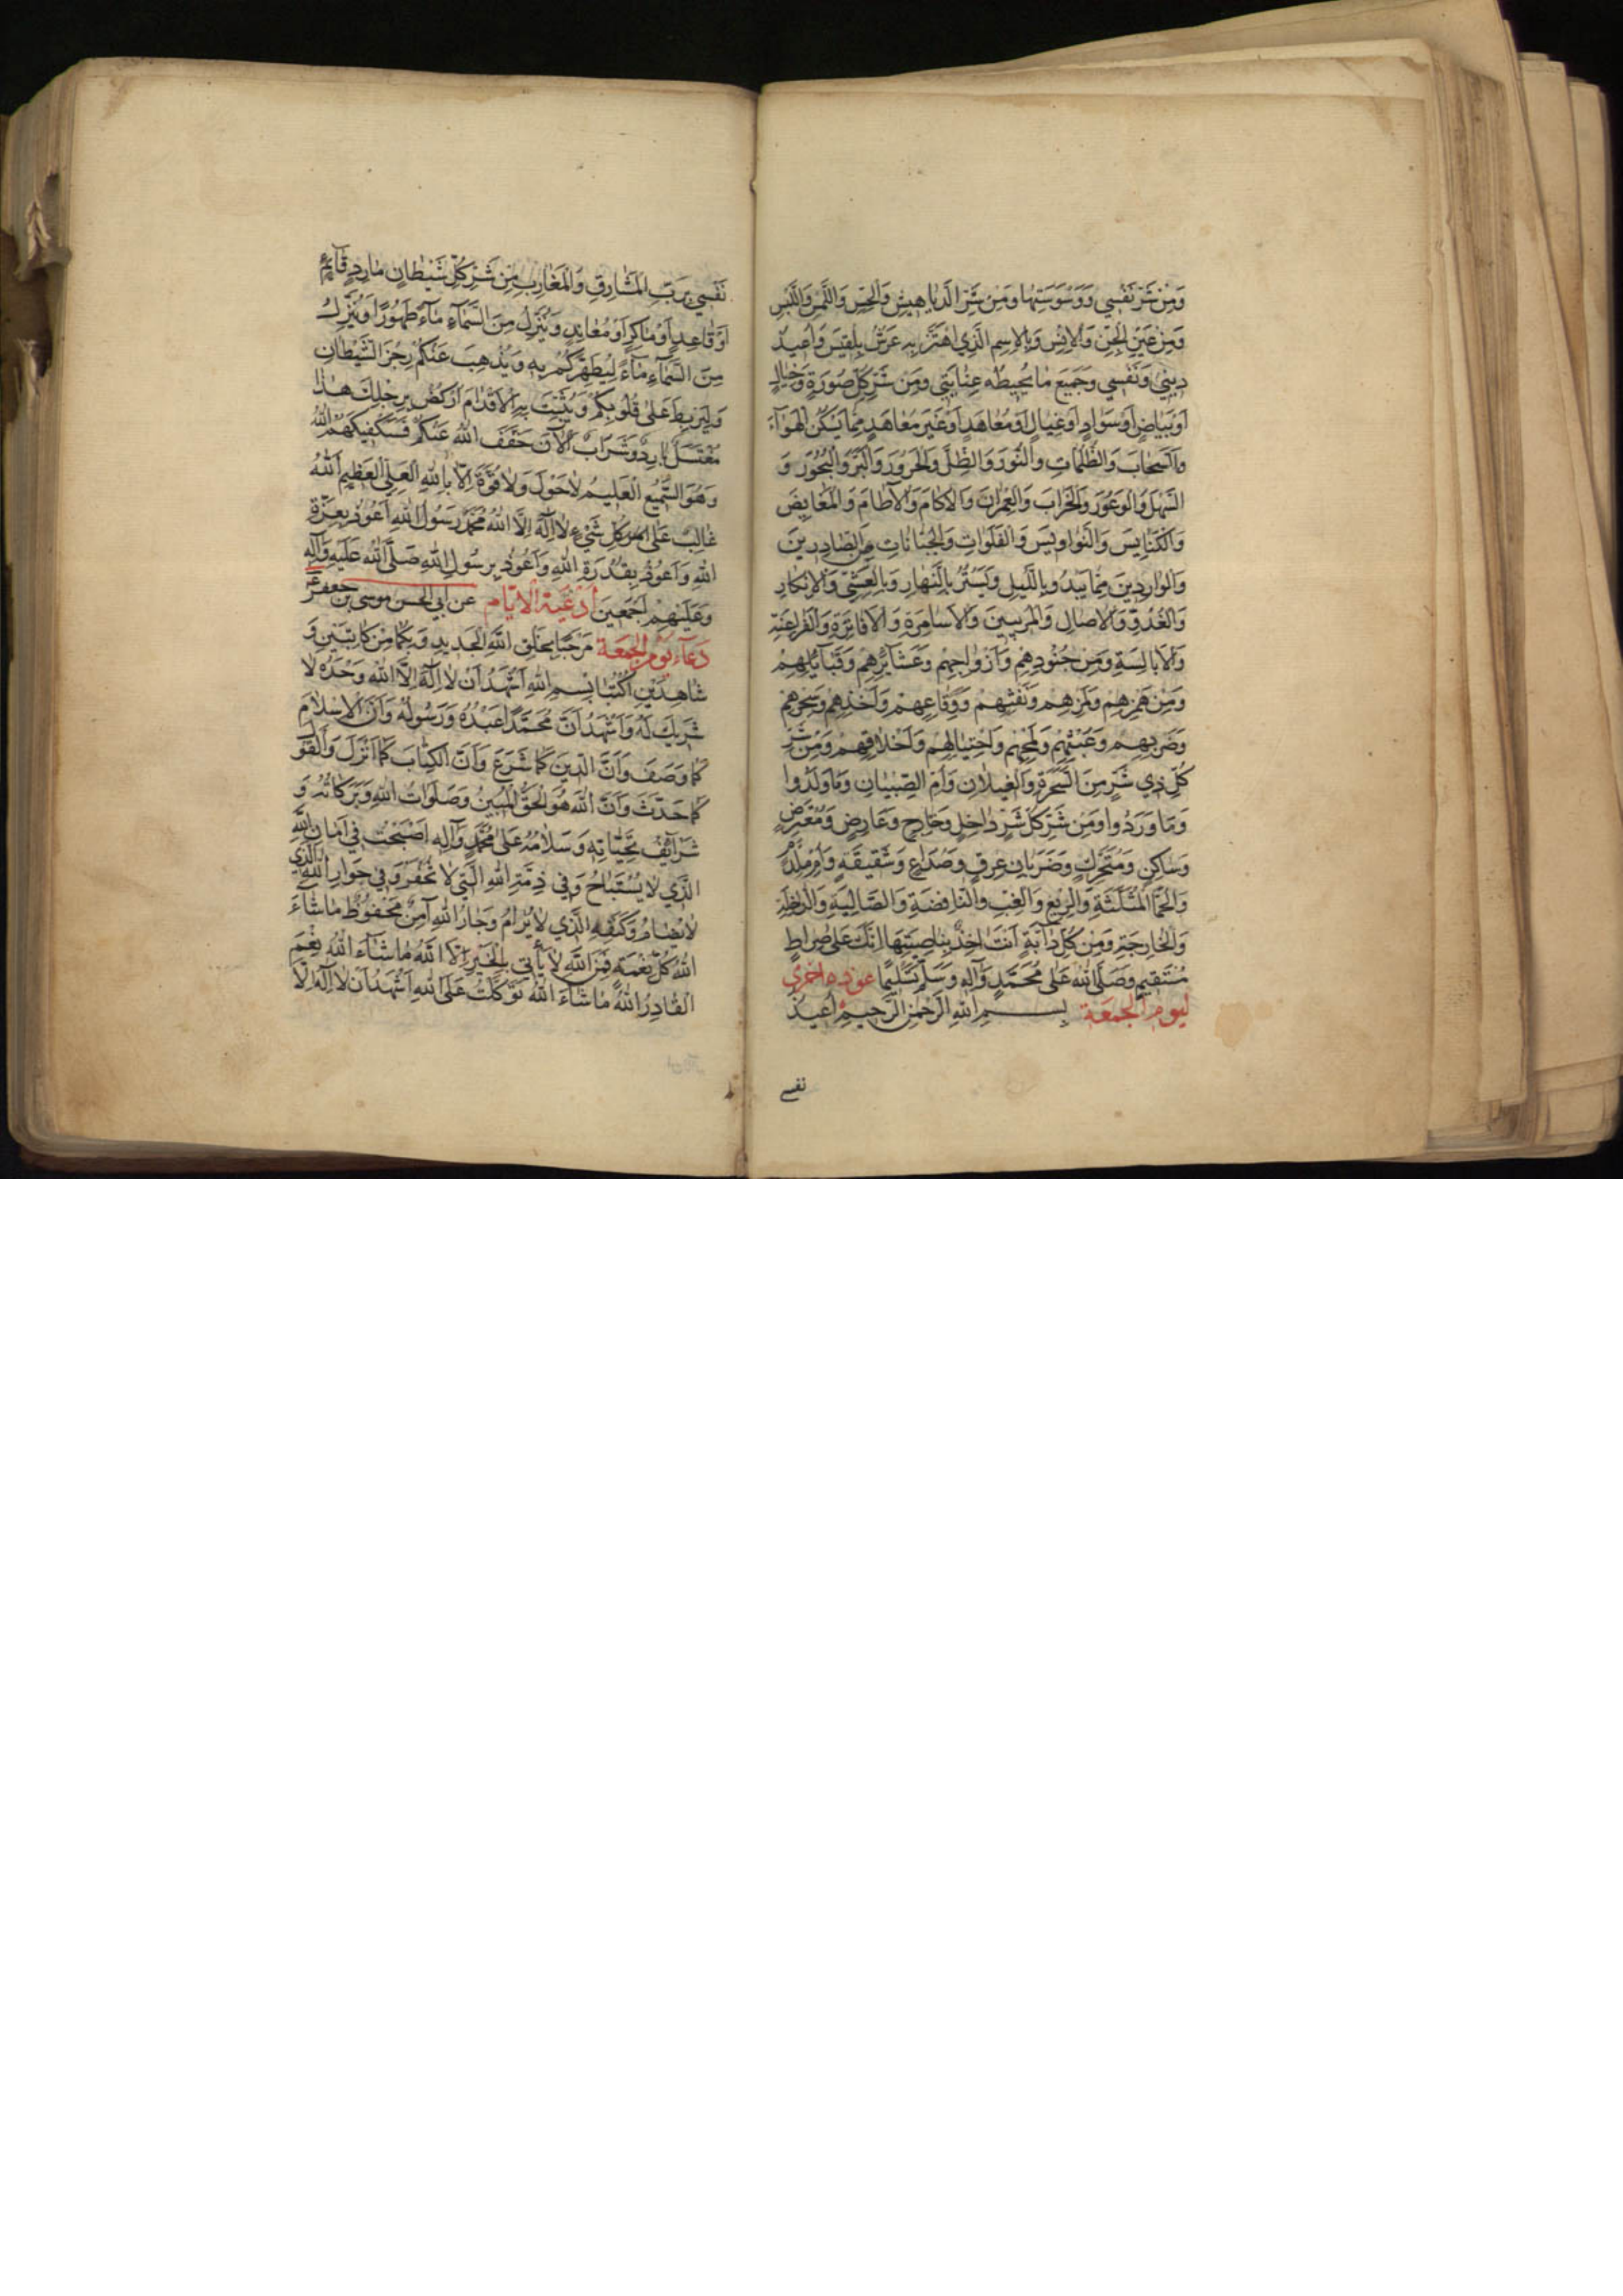 وَمِنْ شَرِّ نَفْسِي وَوَسْوَسَتِهَا وَمِنْ شَرِّ الدَّيَاهِيشِ وَالْحِسِّ وَاللَّمْسِ وَاللَّبْسِ
وَمِنْ عَيْنِ الْجِنِّ وَالْاِنْسِ وَبِالْاِسْمِ الَّذِي اهْتَزَّ بِهِ عَرْشُ بِلْقِيسَ وَاُعِيذُ
دِينِي وَنَفْسِي وَجَمِيعَ مَا تُحِيطُهُ عِنَايَتِي وَمِنْ شَرِّ كُلِّ صُورَةٍ وَخَيَالٍ
اَوْ بَيَاضٍ اَوْ سَوَادٍ اَوْ غِيَالٍ اَوْ مُعَاهَدٍ اَوْ غَيْرِ مُعَاهَدٍ مِمَّا يَسْكُنُ الْهَوَآءَ
وَالسَّحَابَ وَالظُّلُمَاتِ وَالنُّورَ وَالظِّلَّ وَالْحَرُورَ وَالْبَرَّ وَالْبُحُورَ وَ
السَّهْلَ وَالْوُعُورَ وَالْخَرَابَ وَالْعِمْرَانَ وَالْاكَامَ وَالْاطَامَ وَالْمَغَايِضَ
وَالْكَنَايِسَ وَالنَّوَاوِيسَ وَالْفَلَوَاتِ وَالْجَبَّانَاتِ مِنَ الصَّادِرِينَ
وَالْوَارِدِينَ مِمَّا يَبْدُو بِاللَّيْلِ وَيَسْتُرُ بِالنَّهَارِ وَبِالْعَشِيِّ وَالْاِبْكَارِ
وَالْغُدُوِّ وَالْاصَالِ وَالْمُرِيبِينَ وَالْاَسَامِرَةِ وَالْاَفَاتِرَةِ وَالْفَرَاعِنَةِ
وَالْاَبَالِسَةِ وَمِنْ جُنُودِهِمْ وَاَزْوَاجِهِمْ وَعَشَآئِرِهِمْ وَقَبَآئِلِهِمْ
وَمِنْ هَمْزِهِمْ وَلَمْزِهِمْ وَنَفْثِهِمْ وَوِقَاعِهِمْ وَاَخْذِهِمْ وَسِحْرِهِمْ
وَضَرْبِهِمْ وَعَبَثِهِمْ وَلَمْحِهِمْ وَاحْتِيَالِهِمْ وَاَخْلَاقِهِمْ وَمِنْ شَرِّ
كُلِّ ذِي شَرٍّ مِنَ السَّحَرَةِ وَالْغِيلَانِ وَاُمِّ الصِّبْيَانِ وَمَا وَلَدُوا
وَمَا وَرَدُوا وَمِنْ شَرِّ كُلِّ شَرٍّ دَاخِلٍ وَخَارِجٍ وَعَارِضٍ وَمُعْتَرِضٍ
وَسَاكِنٍ وَمُتَحَرِّكٍ وَضَرَبَانِ عِرْقٍ وَصُدَاعٍ وَشَقِيقَةٍ وَاُمِّ مِلْدَمٍ
وَالْحُمَّى الْمُثَلَّثَةِ وَالرِّبْعِ وَالْغِبِّ وَالنَّافِضَةِ وَالصَّالِبَةِ وَالدَّاخِلَةِ
وَالْخَارِجَةِ وَمِنْ كُلِّ دَآبَّةٍ اَنْتَ اخِذٌ بِنَاصِيَتِهَا اِنَّكَ عَلَى صِرَاطٍ
مُسْتَقِيمٍ وَصَلَّى اللهُ عَلَى مُحَمَّدٍ وَآلِهِ وَسَلَّمَ تَسْلِيمًا عوذه اخرى
لِيَوْمِ الْجُمْعَةِ بِسْمِ اللهِ الرَّحْمٰنِ الرَّحِيمِ اُعِيذُ
نفسى
نَفْسِي بِرَبِّ الْمَشَارِقِ وَالْمَغَارِبِ مِنْ شَرِّ كُلِّ شَيْطَانٍ مَارِدٍ قَآئِمٍ
اَوْ قَاعِدٍ اَوْ مَاكِرٍ اَوْ مُعَانِدٍ وَيُنَزِّلُ مِنَ السَّمَآءِ مَآءً طَهُورًا وَيُنَزِّلُ
مِنَ السَّمَآءِ مَآءً لِيُطَهِّرَكُمْ بِهِ وَيُذْهِبَ عَنْكُمْ رِجْزَ الشَّيْطَانِ
وَلِيَرْبِطَ عَلَى قُلُوبِكُمْ وَيُثَبِّتَ بِهِ الْاَقْدَامَ اُرْكُضْ بِرِجْلِكَ هَذَا
مُغْتَسَلٌ بَارِدٌ وَشَرَابٌ الْآنَ خَفَّفَ اللهُ عَنْكُمْ فَسَيَكْفِيكَهُمُ اللهُ
وَهُوَ السَّمِيعُ الْعَلِيمُ لَا حَوْلَ وَلَا قُوَّةَ اِلَّا بِاللهِ الْعَلِيِّ الْعَظِيمِ اللهُ
غَالِبٌ عَلَى اَمْرِ كُلِّ شَيْءٍ لَا اِلَهَ اِلَّا اللهُ مُحَمَّدٌ رَسُولُ اللهِ اَعُوذُ بِعِزَّةِ
اللهِ وَاَعُوذُ بِقُدْرَةِ اللهِ وَاَعُوذُ بِرَسُولِ اللهِ صَلَّى اللهُ عَلَيْهِ وَآلِهِ
وَعَلَيْهِمْ اَجْمَعِينَ اَدْعِيَةُ الْاَيَّامِ عن ابي الحسن موسى بن جعفر ع
دُعَآءُ يَوْمِ الْجُمْعَةِ مَرْحَبًا بِخَلْقِ اللهِ الْجَدِيدِ وَبِكُمَا مِنْ كَاتِبَيْنِ وَ
شَاهِدَيْنِ اُكْتُبَا بِسْمِ اللهِ اَشْهَدُ اَنْ لَا اِلَهَ اِلَّا اللهُ وَحْدَهُ لَا
شَرِيكَ لَهُ وَاَشْهَدُ اَنَّ مُحَمَّدًا عَبْدُهُ وَرَسُولُهُ وَاَنَّ الْاِسْلَامَ
كَمَا وَصَفَ وَاَنَّ الدِّينَ كَمَا شَرَعَ وَاَنَّ الْكِتَابَ كَمَا اَنْزَلَ وَالْقَوْلَ
كَمَا حَدَّثَ وَاَنَّ اللهَ هُوَ الْحَقُّ الْمُبِينُ وَصَلَوَاتُ اللهِ وَبَرَكَاتُهُ وَ
شَرَآئِفُ تَحِيَّاتِهِ وَسَلَامُهُ عَلَى مُحَمَّدٍ وَآلِهِ اَصْبَحْتُ فِي اَمَانِ اللهِ
الَّذِي لَا يُسْتَبَاحُ وَفِي ذِمَّةِ اللهِ الَّتِي لَا تُخْفَرُ وَفِي جِوَارِ اللهِ الَّذِي
لَا يُضَامُ وَكَنَفِهِ الَّذِي لَا يُرَامُ وَجَارُ اللهِ آمِنٌ مَحْفُوظٌ مَا شَآءَ
اللهُ كُلُّ نِعْمَةٍ فَمِنَ اللهِ لَا يَأْتِي بِالْخَيْرِ اِلَّا اللهُ مَا شَآءَ اللهُ نِعْمَ
الْقَادِرُ اللهُ مَا شَآءَ اللهُ تَوَكَّلْتُ عَلَى اللهِ اَشْهَدُ اَنْ لَا اِلَهَ اِلَّا